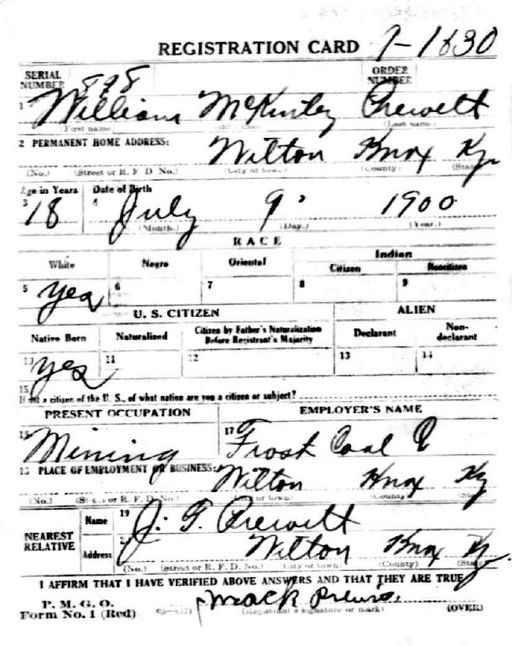 REGISTRATION CARD 1-1830
SERIAL NUMBER 898 ORDER NUMBER
1 William McKinley Prewitt
(First name) (Last name)
2 PERMANENT HOME ADDRESS: Wilton Knox Ky
(No.) (Street or R. F. D No.) (City or town) (County) (State)
Age in Years Date of Birth
3 18 4 July 9 1900
(Month.) (Day.) (Year.)
RACE
White Negro Oriental Indian
Citizen Noncitizen
5 yes 6 7 8 9
U. S. CITIZEN ALIEN
Native Born Naturalized Citizen by Father's Naturalization Before Registrant's Majority Declarant Non-declarant
10 yes 11 12 13 14
15 If not a citizen of the U. S., of what nation are you a citizen or subject?
PRESENT OCCUPATION EMPLOYER'S NAME
16 Mining 17 Frost Coal
18 PLACE OF EMPLOYMENT OR BUSINESS: Wilton Knox Ky
(No.) (Street or R. F. D No.) (City or town) (County) (State)
NEAREST RELATIVE Name 19 J. F. Prewitt
Address 20 Wilton Knox Ky.
(No.) (street or R. F. D. No.) (City or town) (County) (State)
I AFFIRM THAT I HAVE VERIFIED ABOVE ANSWERS AND THAT THEY ARE TRUE
P. M. G. O.
Form No. 1 (Red) Mack
(Registrant's signature or mark) (OVER)